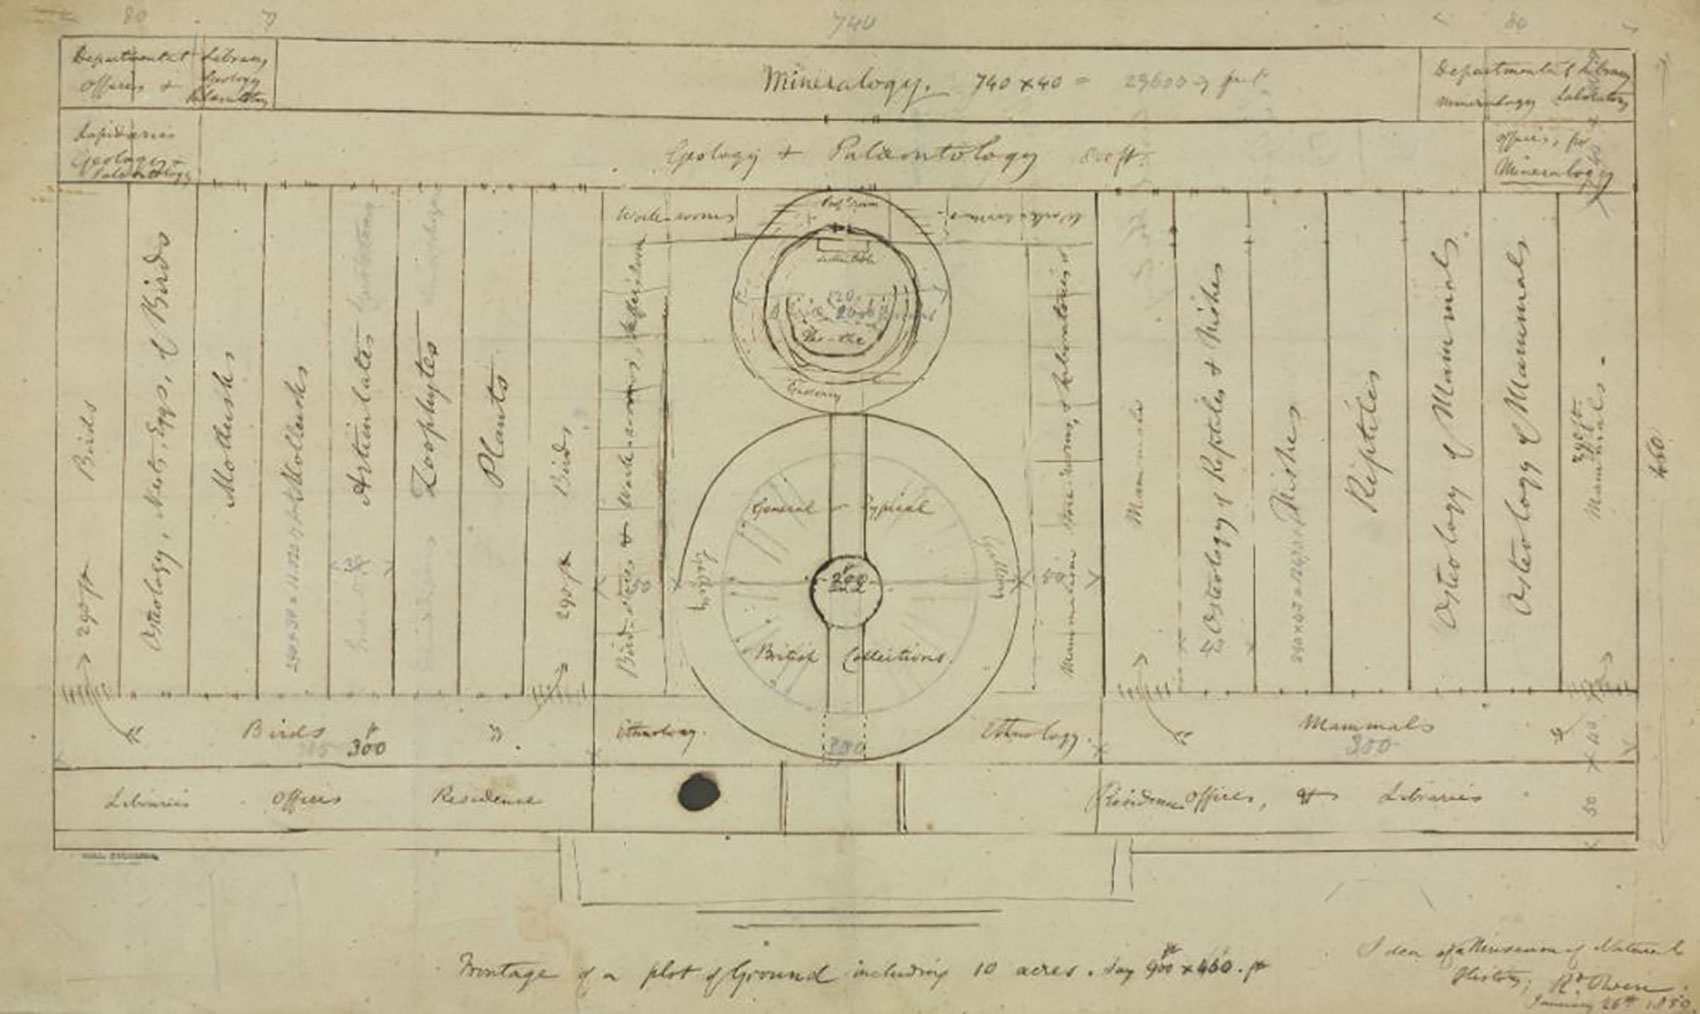 80
740
80
Departmental Library
Offices + Geology
Palæontology
Mineralogy. 740 x 40 = 29600 sq feet
Departmental Library
Mineralogy Laboratory
Lapidaries
Geology +
Palæontology
Geology + Palæontology 800 ft.
Offices, for
Mineralogy
Birds 290 ft
Osteology, Nests, Eggs, of Birds
Mollusks
Mollusks
Articulates
Zoophytes
Plants
Birds 290 ft
Work-rooms
Bird-stores & Work-rooms,
50
120
Theatre
Gallery
General - Typical
Gallery
Gallery
200
British Collections.
Mammalian store-rooms, & Laboratories
50
Mammals
Osteology of Reptiles & Fishes
Fishes
Reptiles
Osteology of Mammals
Osteology of Mammals
290 ft
Mammals
460
Birds
300
Ethnology.
Ethnology.
Mammals
300
Libraries Offices Residence
Residence Offices, & Libraries
50
Frontage of a plot of Ground including 10 acres. Say 900 x 460. ft
Idea of a Museum of Natural
History; Rd Owen.
January 26th 1859